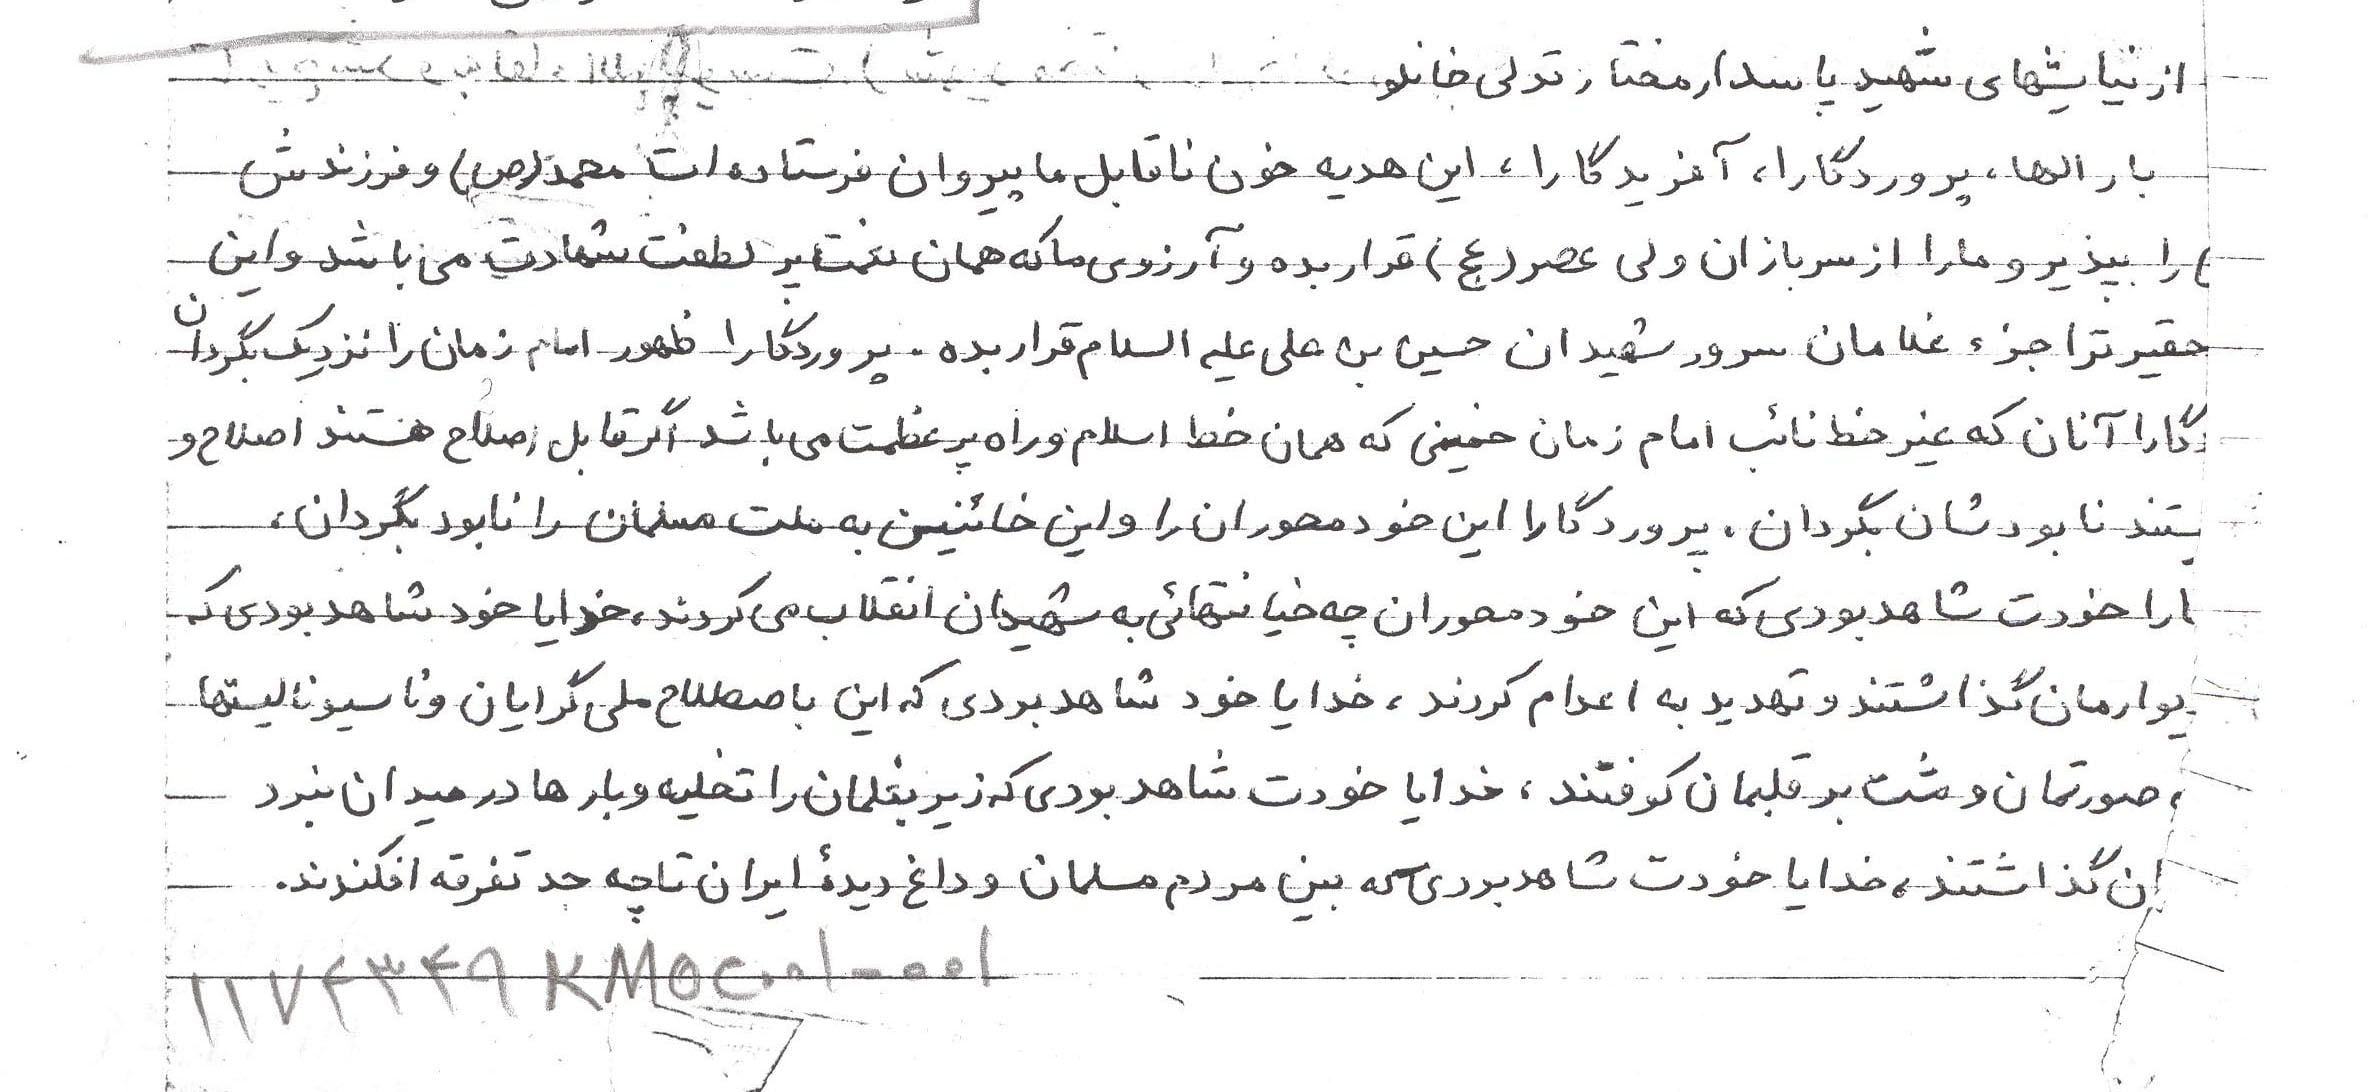 از نیایشهای شهید پاسدار مختار تدلی خانلو
بار الها، پروردگارا، آفریدگارا، این هدیه خون ناقابل ما پیروان فرستاده ات محمد(ص) و فرزندش
) را بپذیر و ما را از سربازان ولی عصر (عج) قرار بده و آرزوی ما که همان نعمت پر لطفت شهادت می باشد و این
حقیر ترا جزء غلامان سرور شهیدان حسین بن علی علیه السلام قرار بده . پروردگارا ظهور امام زمان را نزدیک بگردان
دگارا آنان که غیر خط نائب امام زمان خمینی که همان خط اسلام و راه پر عظمت می باشد اگر قابل اصلاح هستند اصلاح و
یستند نابودشان بگردان . پروردگارا این خود محوران را و این خائنین به ملت مسلمان را نابود بگردان ،
ارا خودت شاهد بودی که این خود محوران چه خیانتهائی به شهیدان انقلاب می کردند ، خدایا خود شاهد بودی که
یوارمان گذاشتند و تهدید به اعدام کردند ، خدایا خود شاهد بودی که این باصطلاح ملی گرایان و ناسیونالیستها
صورتمان و مشت بر قلبمان کوفتند ، خدایا خودت شاهد بودی که زیر بغلمان را تخلیه و بارها در میدان نبرد
ان گذاشتند ، خدایا خودت شاهد بودی که بین مردم مسلمان و داغ دیدهٔ ایران تا چه حد تفرقه افکندند .